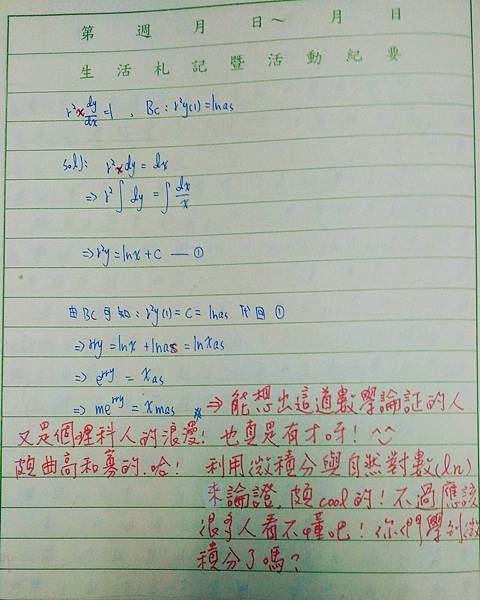 第 週 月 日~ 月 日
生活札記暨活動紀要
r²x dy/dx = 1 , BC : r²y(1) = ln as
sol): r²x dy = dx
⇒ r² ∫ dy = ∫ dx/x
⇒ r²y = ln x + C — ①
由 BC 可知 : r²y(1) = C = ln as 代回 ①
⇒ rry = ln x + ln as = ln xas
⇒ e^rry = xas
⇒ me^rry = xmas
⇒ 能想出這道數學論証的人
又是個理科人的浪漫! 也真是有才呀! ^^
頗曲高和寡的.哈! 利用微積分與自然對數(ln)
來論證,頗cool的! 不過應該
很多人看不懂吧! 你們學到微
積分了嗎?